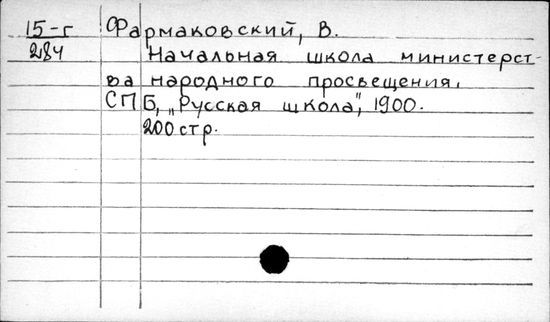 15-г Фармаковский, В.
284 Начальная школа министерст-
ва народного просвещения.
СПБ, „Русская школа", 1900.
200 стр.